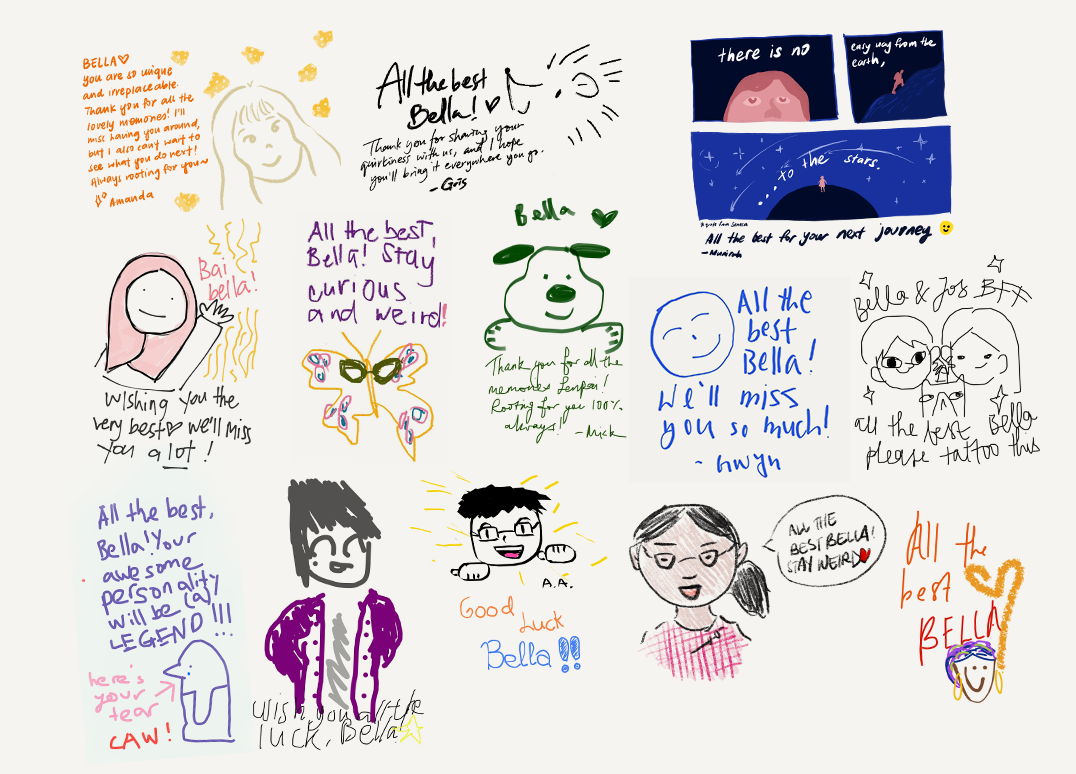 BELLA♡
you are so unique
and irreplaceable.
Thank you for all the
lovely memories! I'll
miss having you around,
but I also can't wait to
see what you do next!
Always rooting for you~
Amanda
All the best
Bella! ♡
Thank you for sharing your
quirkiness with us, and I hope
you'll bring it everywhere you go.
- Gris
there is no
easy way from the
earth,
...to the stars.
A quote from Seneca
All the best for your next journey
Bai
bella!
Wishing you the
very best♡ we'll miss
you a lot!
All the best,
Bella! Stay
curious
and weird!
Bella
Thank you for all the
memories
Rooting for you 100%
always! - Mick
All the
best
Bella!
We'll miss
you so much!
- Gwyn
Bella & Jos BFF
all the best Bella
please tattoo this
All the best,
Bella! Your
awesome
personality
will be (a)
LEGEND!!!...
here's
your
tear
CAW!
Wish you all the
luck, Bella!
A.A.
Good
Luck
Bella!!
ALL THE
BEST BELLA!
STAY WEIRD♥
All the
best
BELLA